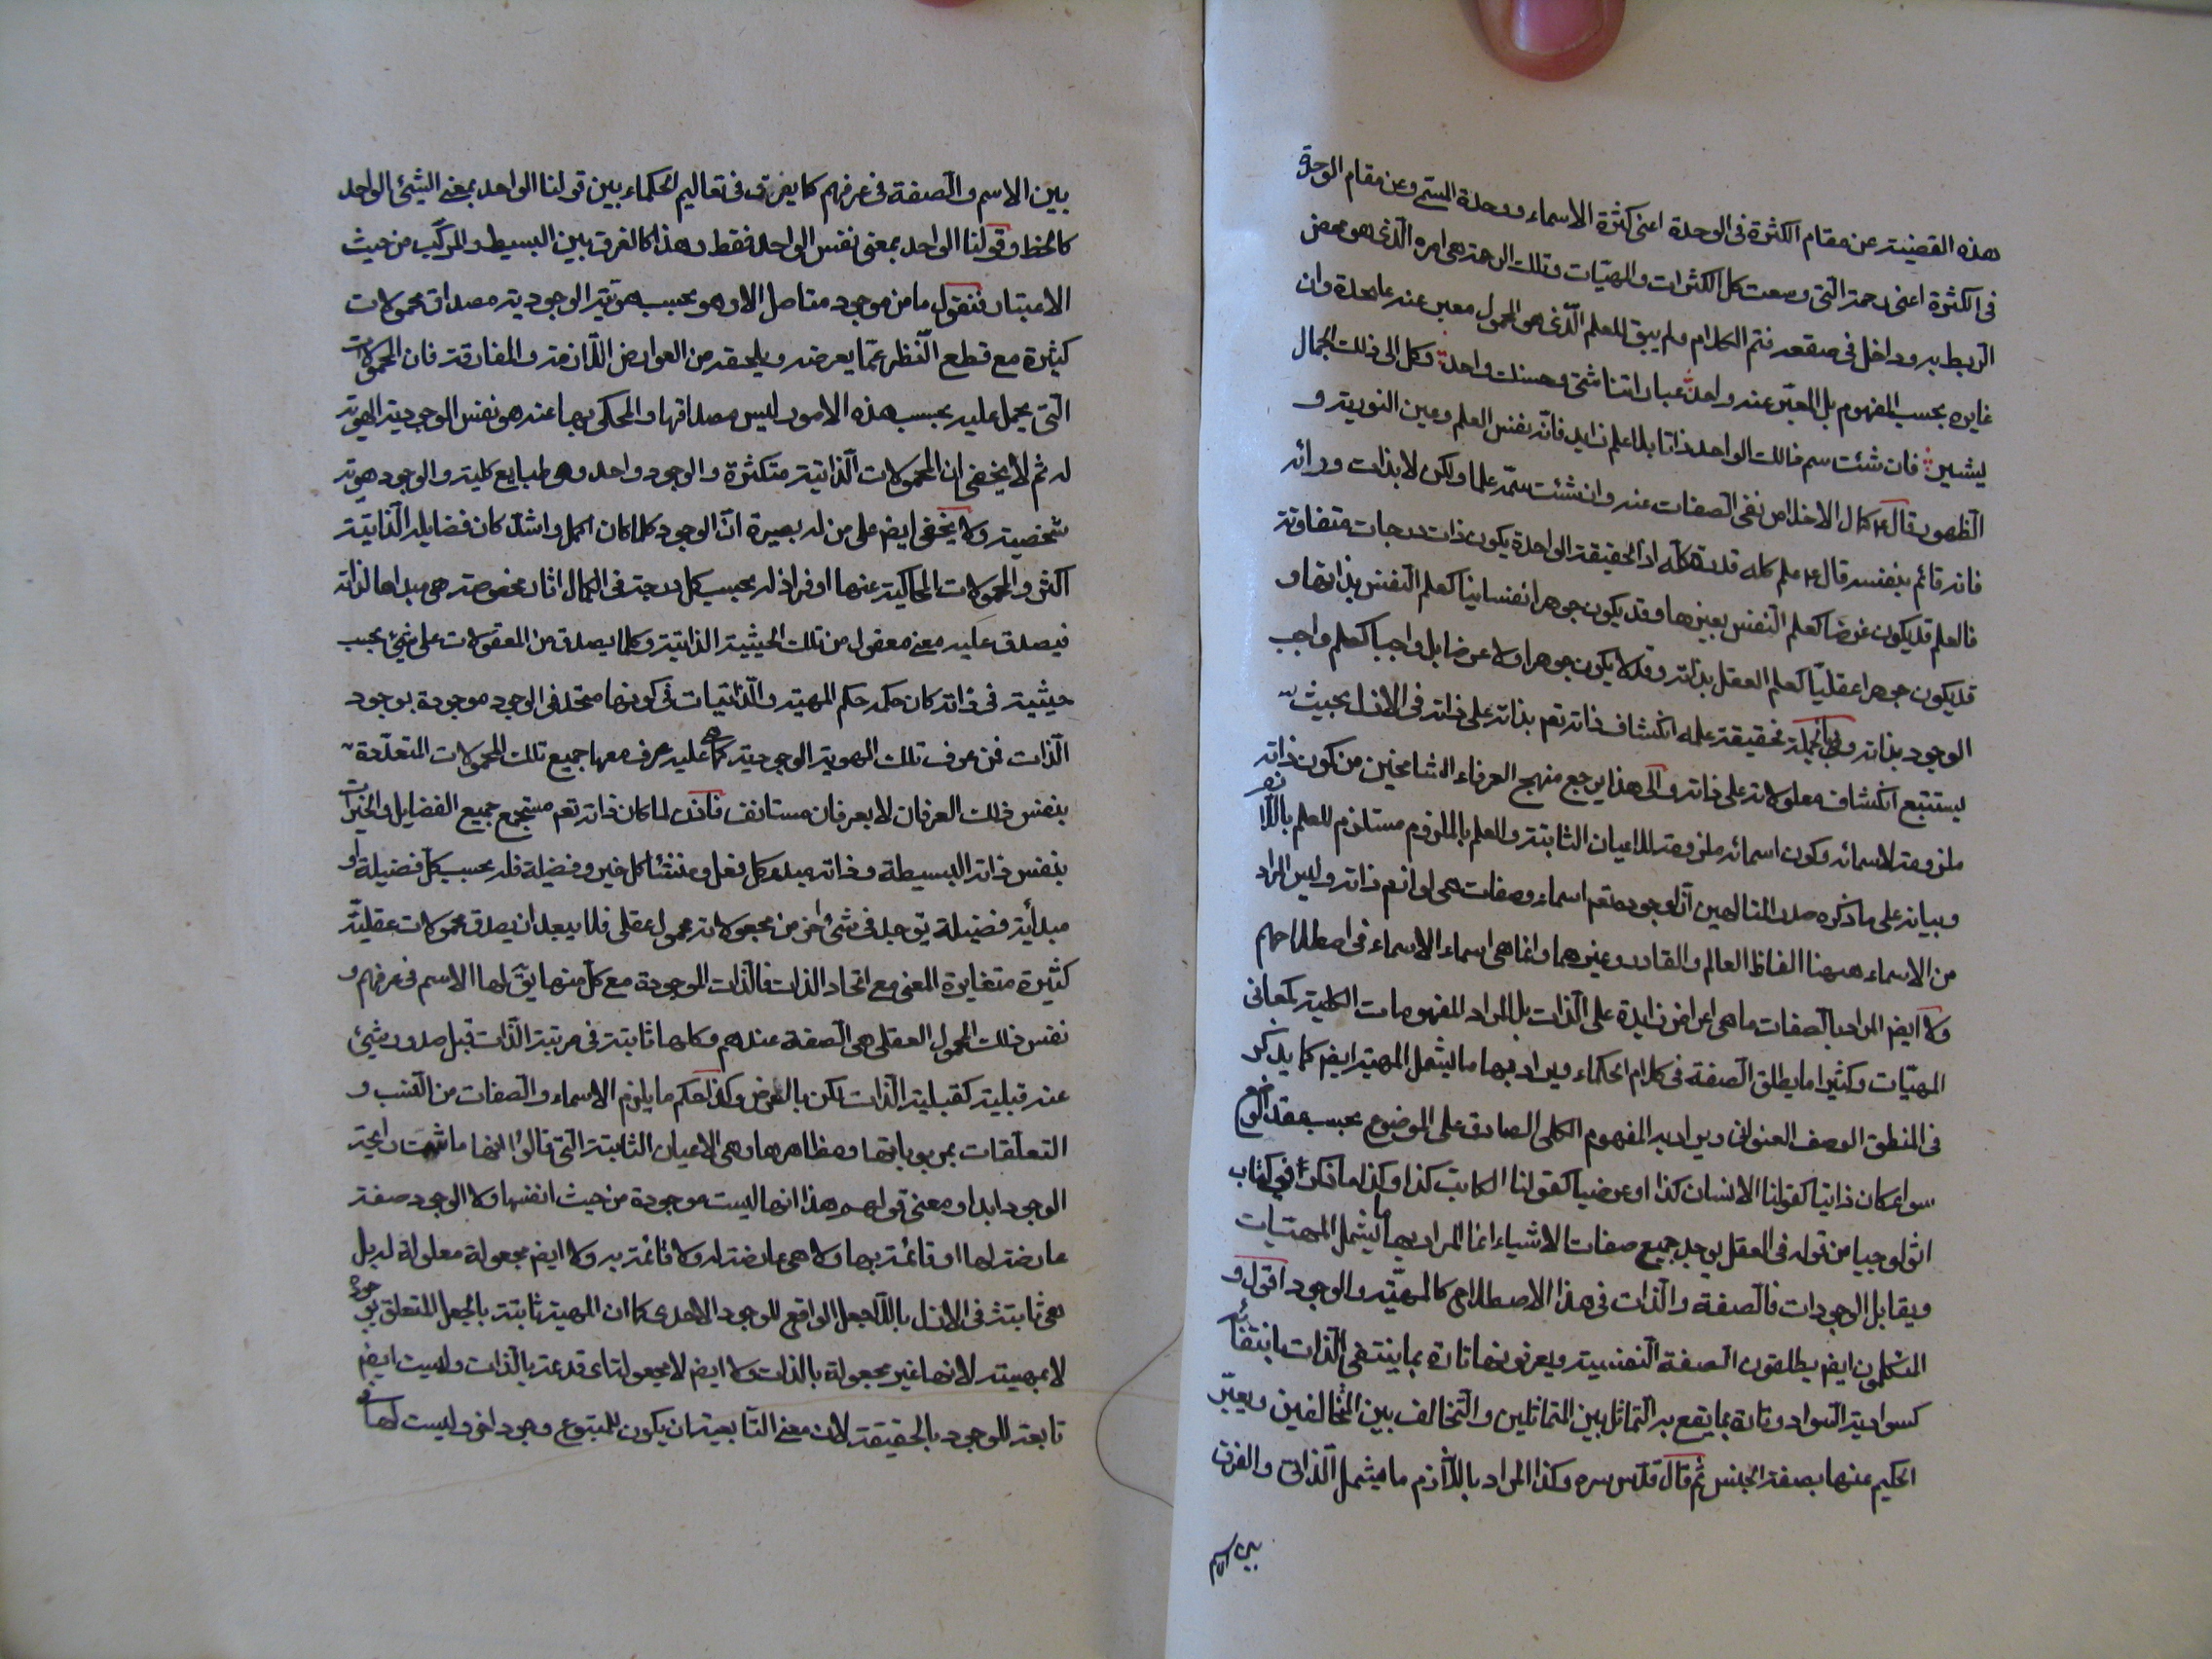 هذه القضية عن مقام الكثرة فى الوحدة اعنى كثرة الاسماء ووحدة المسمّى وعن مقام الوحدة
فى الكثرة اعنى رحمته الّتى وسعت كل الكثرات والمهيّات وتلك الرحمة هى امره الّذى هو محض
الرّبط به وداخل فى صقعه فتم الكلام ولم يبق للعلم الّذى هو المحمول معبر عنه عليحدة وان
غايره بحسب المفهوم بل المعبّر عنه واحد عباراتنا شتى وحسنك واحد وكل الى ذلك الجمال
يشير فان شئت سم ذالك الواحد ذاتا بلا علم زايد فانّه نفس العلم وعين النورية و
الظهور قال ع كمال الاخلاص نفى الصفات عنه وان شئت سمّه علما ولكن لا بذات ورائه
فانه قائم بنفسه قال ع علم كله قدرة كله اذ الحقيقة الواحدة يكون ذات درجات متفاوتة
فالعلم قد يكون عرضا كعلم النّفس بغيرها وقد يكون جوهرا نفسانيا كعلم النّفس بذاتها و
قد يكون جوهرا عقليّا كعلم العقل بذاته وقد لا يكون جوهرا ولا عرضا بل واجبا كعلم واجب
الوجود بذاته وبالجملة فحقيقة علمه انكشاف ذاته تعم بذاته على ذاته فى الازل بحيث
يستتبع انكشاف معلولاته على ذاته والى هذا يرجع منهج العرفاء الشامخين من كون ذاته تعم
ملزومة لاسمائه وكون اسمائه ملزومة للاعيان الثابتة والعلم بالملزوم مستلزم للعلم باللّازم
وبيانه على ما ذكره صدر المتالهين انّ لوجوده تعم اسماء وصفات هى لوازم ذاته وليس المراد
من الاسماء ههنا الفاظ العالم والقادر وغيرهما وانما هى اسماء الاسماء فى اصطلاحهم
ولا ايضم المراد بالصفات ما هى اعراض زايدة على الذّات بل المراد المفهومات الكلية كمعانى
المهيّات وكثيرا ما يطلق الصفة فى كلام الحكماء ويراد بها ما يشمل المهية ايضم كما يذكر
فى المنطق الوصف العنوانى ويراد به المفهوم الكلى الصادق على الموضوع بحسب عقد الوضع
سواء كان ذاتيا كقولنا الانسان كذا او عرضيا كقولنا الكاتب كذا وكذا ما ذكر فى كتاب
اثولوجيا من قوله فى العقل يوجد جميع صفات الاشياء انما المراد بها ما يشمل المهيّات
ويقابل الوجودات فالصفة والذّات فى هذا الاصطلاح كالمهيّة والوجود اقول و
المتكلمون ايضم يطلقون الصفة النفسية ويعرفونها تارة بما ينتفى الذّات بانتفائه
كسوادية السّواد وتارة بما يقع به التماثل بين المتماثلين والتّخالف بين المتخالفين ويعبّر
الحكيم عنها بصفة الجنس ثم قال قدّس سره وكذا المراد باللّازم ما يشمل الذّاتى والفرق
بين الاسم
بين الاسم والصفة فى عرفهم كما يفرق فى تعاليم الحكماء بين قولنا الواحد بمعنى الشيئ الواحد
كالخط وقولنا الواحد بمعنى نفس الواحد فقط وهذا كالفرق بين البسيط والمركّب من حيث
الاعتبار فنقول ما من موجود متاصل الا وهو بحسب هويّته الوجودية مصداق محمولات
كثيرة مع قطع النّظر عمّا يعرضه ويلحقه من العوارض اللّازمة والمفارقة فان المحمولات
التى يحمل عليه بحسب هذه الامور ليس مصداقها والمحكى بها عنه هو نفس الوجودية الهوية
له ثم لا يخفى ان المحمولات الذّاتية متكثرة والوجود واحد وهى طبايع كلية والوجود هوية
شخصية ولا يخفى ايضم على من له بصيرة انّ الوجود كلما كان اكمل واشدّ كان فضايله الذّاتيّة
اكثر والمحمولات الحاكية عنها اوفر اذ له بحسب كل درجة فى الكمال اثار مخصوصة هى مبداها لذاته
فيصدق عليه معنى معقول من تلك الحيثية الذاتية وكلما يصدق من المعقولات على شيئ بحسب
حيثية فى ذاته كان حكمه حكم المهية والذّاتيات فى كونها متحد فى الوجود موجودة بوجود
الذّات فمن عرف تلك الهوية الوجودية كما هى عليه عرف معها جميع تلك المحمولات المتعدّدة
بنفس ذلك العرفان لا بعرفان مستانف فاذن لما كان ذاته تعم مستجمع جميع الفضايل والخيرات
بنفس ذاته البسيطة وذاته مبدء كل فعل ومنشأ كل خير وفضيلة فله بحسب كلّ فضيلة او
مبدأية فضيلة يوجد فى شئ اخر من مجعولاته محمول عقلى فلا يبعد ان يصدق محمولات عقليّة
كثيرة متغايرة المعنى مع اتحاد الذات فالذّات الموجودة مع كل منها يقّ لها الاسم فى عرفهم و
نفس ذلك المحمول العقلى هى الصفة عندهم وكلها ثابتة فى مرتبة الذّات قبل صدور شيئ
عنه قبلية كقبلية الذّات لكن بالعرض وكذا حكم ما يلزم الاسماء والصّفات من النّسب و
التعلّقات بمربوباتها ومظاهرها وهى الاعيان الثابتة التى قالوا انها ما شمّت رايحة
الوجود ابدا ومعنى قولهم هذا انها ليست موجودة من حيث انفسها ولا الوجود صفة
عارضة لها او قائمة بها ولا هى عارضة له ولا قائمة به ولا ايضم مجعولة معلولة له بل
هى ثابتة فى الازل باللّاجعل الواقع للوجود الاحدى كما ان المهية ثابتة بالجعل المتعلق بوجوده
لا بمهيته لانها غير مجعولة بالذات ولا ايضم لا مجعولة اى قديمة بالذّات وليست ايضم
تابعة للوجود بالحقيقة لان معنى التّابعية ان يكون للمتبوع وجود اخر وليست لها فى